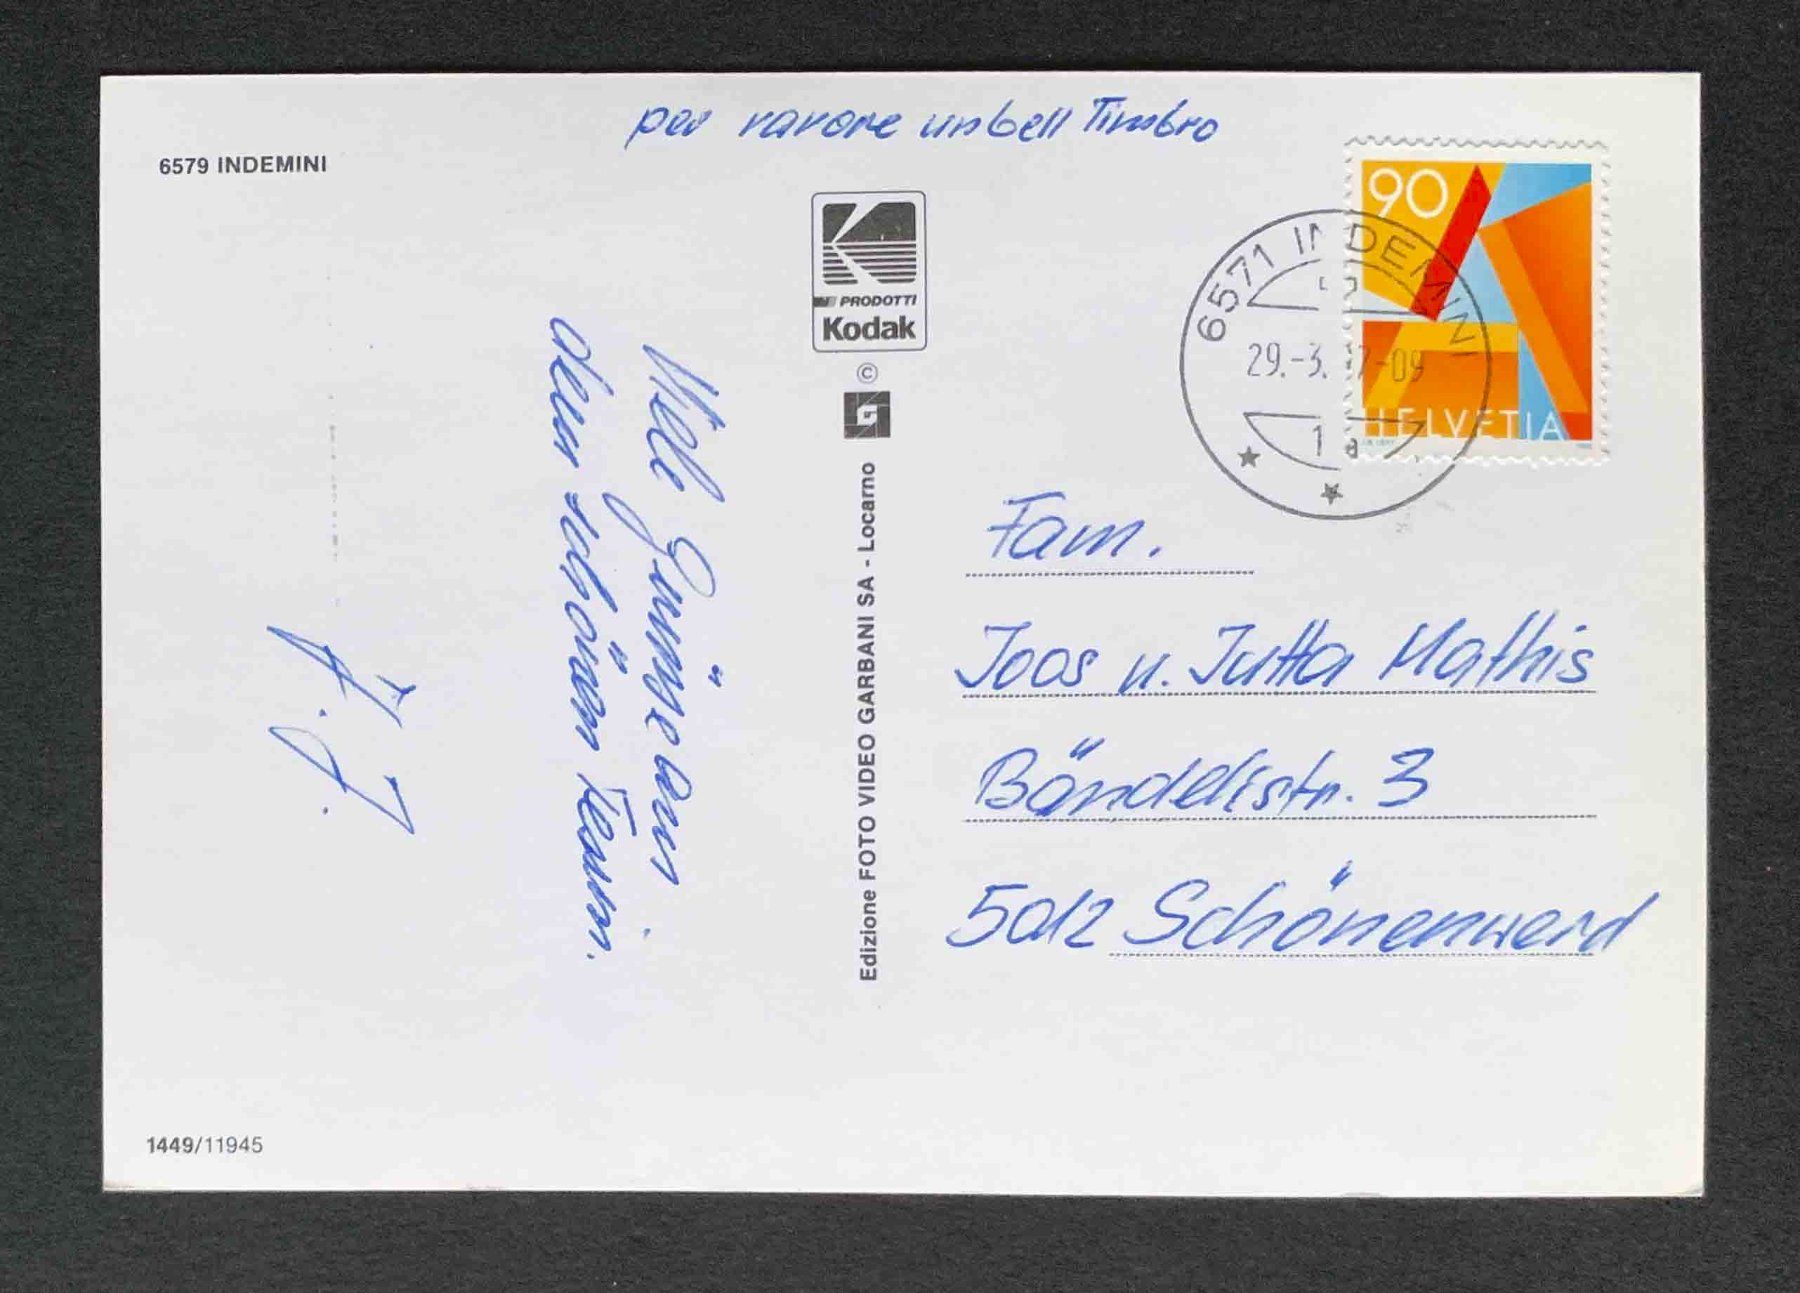 per ravore un bell Timbro
6579 INDEMINI
90
HELVETIA
6571 INDEMINI
29.-3. 7-09
PRODOTTI
Kodak
©
Edizione FOTO VIDEO GARBANI SA - Locarno
Viele Grüsse aus
dem schönen Tessin.
Fam.
Joos u. Jutta Mathis
Bändelistr. 3
5012 Schönenwerd
1449/11945